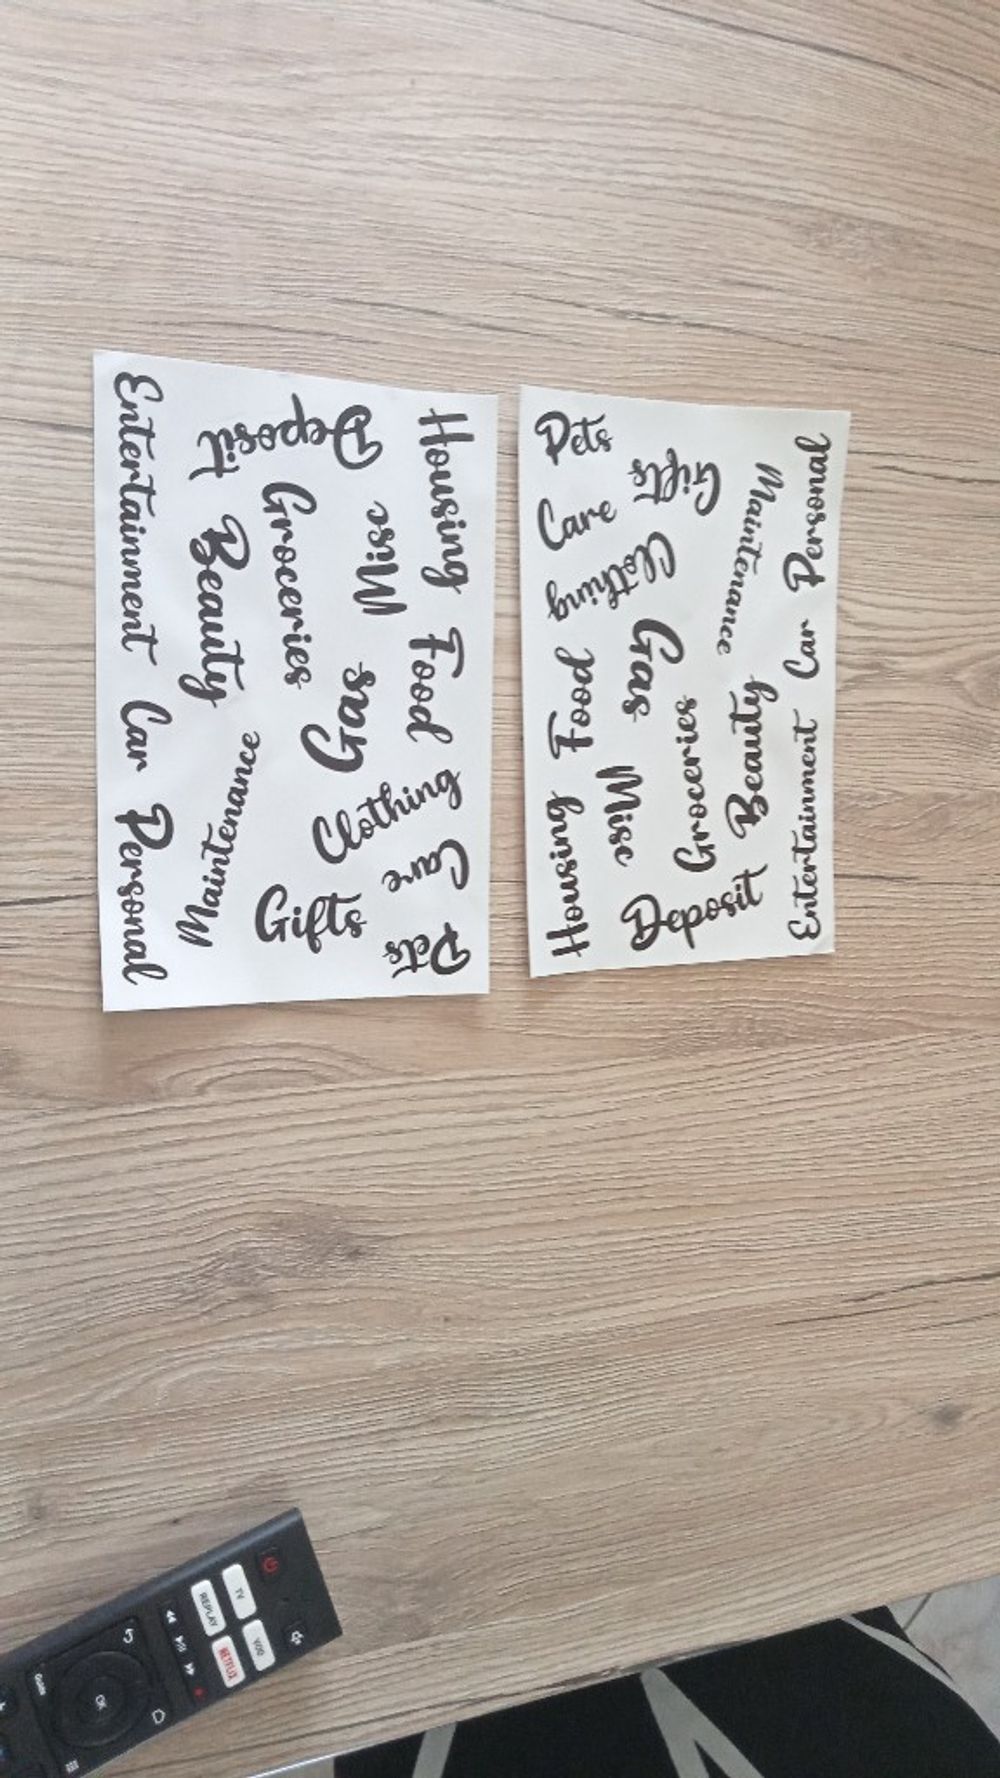 Housing Food Care Pets
Misc Gas Clothing
Deposit Groceries Gifts
Beauty Maintenance
Entertainment Car Personal
Pets Care Food Housing
Gifts Clothing Gas Misc
Groceries Deposit
Maintenance Beauty
Personal Car Entertainment
TV
VOD
REPLAY
NETFLIX
OK